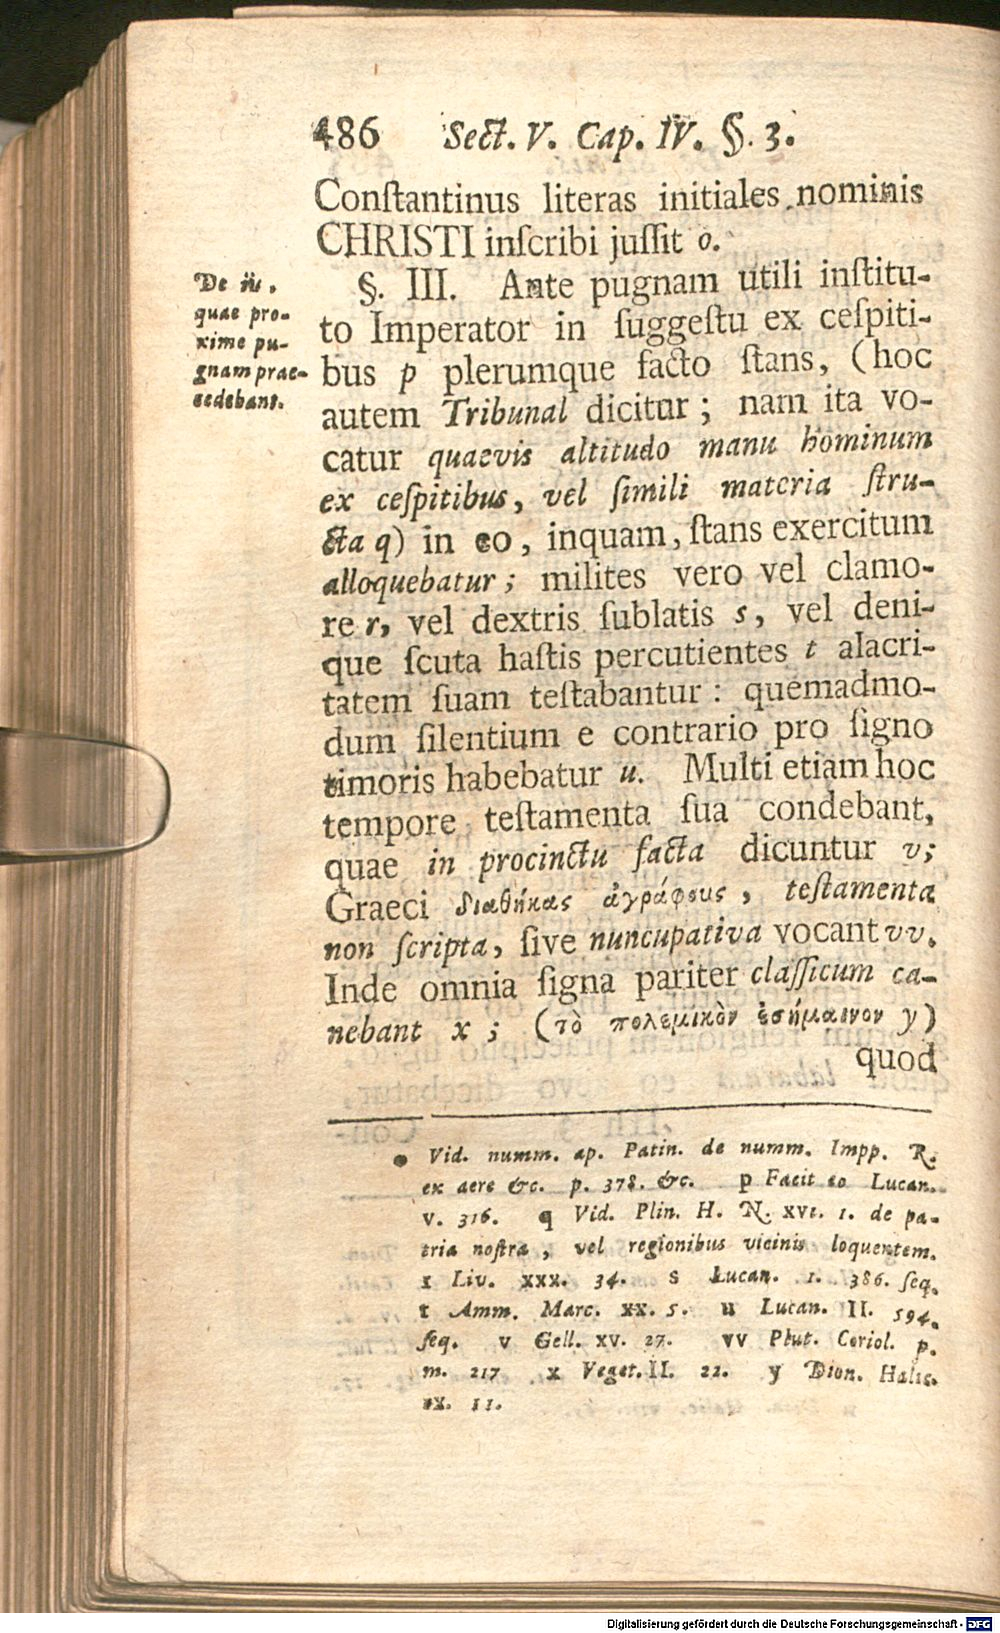 486 Sect. V. Cap. IV. §. 3.
Conſtantinus literas initiales nominis
CHRISTI inſcribi juſſit o.
De iis,
quae pro-
xime pu-
gnam prae-
cedebant.
§. III. Ante pugnam utili inſtitu-
to Imperator in ſuggeſtu ex ceſpiti-
bus p plerumque facto ſtans, (hoc
autem Tribunal dicitur; nam ita vo-
catur quaevis altitudo manu hominum
ex ceſpitibus, vel ſimili materia ſtru-
cta q) in eo, inquam, ſtans exercitum
alloquebatur; milites vero vel clamo-
re r, vel dextris ſublatis s, vel deni-
que ſcuta haſtis percutientes t alacri-
tatem ſuam teſtabantur: quemadmo-
dum ſilentium e contrario pro ſigno
timoris habebatur u. Multi etiam hoc
tempore teſtamenta ſua condebant,
quae in procinctu facta dicuntur v;
Graeci διαθήκας ἀγράφους, teſtamenta
non ſcripta, ſive nuncupativa vocant vv.
Inde omnia ſigna pariter claſſicum ca-
nebant x; (τὸ πολεμικὸν ἐσήμαινον y)
quod
o Vid. numm. ap. Patin. de numm. Impp. R.
ex aere &c. p. 378. &c. p Facit eo Lucan.
V. 316. q Vid. Plin. H. N. XVI. 1. de pa-
tria noſtra, vel regionibus vicinis loquentem.
r Liv. XXX. 34. s Lucan. 1. 386. ſeq.
t Amm. Marc. XX. 5. u Lucan. II. 594.
ſeq. v Gell. XV. 27. vv Plut. Coriol. p.
m. 217 x Veget. II. 22. y Dion. Halic.
IX. 11.
Digitalisierung gefördert durch die Deutsche Forschungsgemeinschaft - DFG